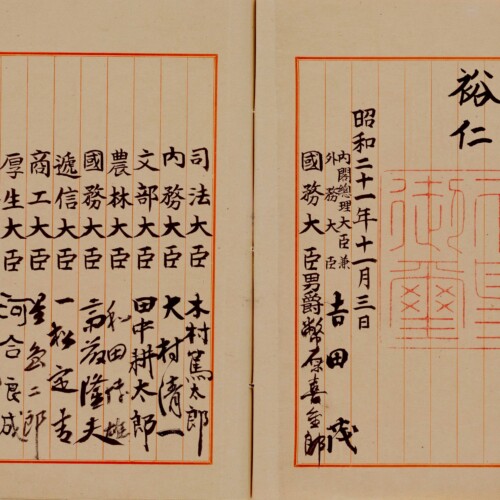 裕仁
御璽
昭和二十一年十一月三日
内閣總理大臣兼
外務大臣 吉田茂
國務大臣男爵幣原喜重郎
司法大臣 木村篤太郎
内務大臣 大村清一
文部大臣 田中耕太郎
農林大臣 和田博雄
國務大臣 斎藤隆夫
遞信大臣 一松定吉
商工大臣 星島二郎
厚生大臣 河合良成